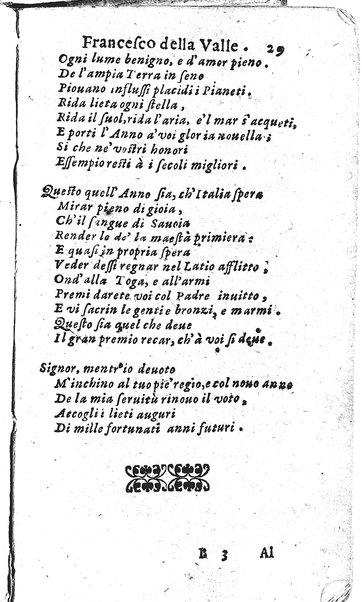 Francesco della Valle. 29
Ogni lume benigno, e d'amor pieno.
De l'ampia Terra in seno
Piouano influssi placidi i Pianeti.
Rida lieta ogni stella,
Rida il suol, rida l'aria, e'l mar s'acqueti,
E porti l'Anno a'voi gloria nouella:
Si che ne'vostri honori
Essempio resti à i secoli migliori.
Questo quell'Anno sia, ch'Italia spera
Mirar pieno di gioia,
Ch'il sangue di Sauoia
Render le de' la maestà primiera:
E quasi in propria spera
Veder dessi regnar nel Latio afflitto;
Ond'alla Toga, e all'armi
Premi darete voi col Padre inuitto,
E vi sacrin le gentie bronzi, e marmi.
Questo sia quel che deue
Il gran premio recar, ch'à voi si deue.
Signor, mentr'io deuoto
M'inchino al tuo piè regio, e col nouo anno
De la mia seruitù rinouo il voto,
Accogli i lieti auguri
Di mille fortunati anni futuri.
B 3 Al